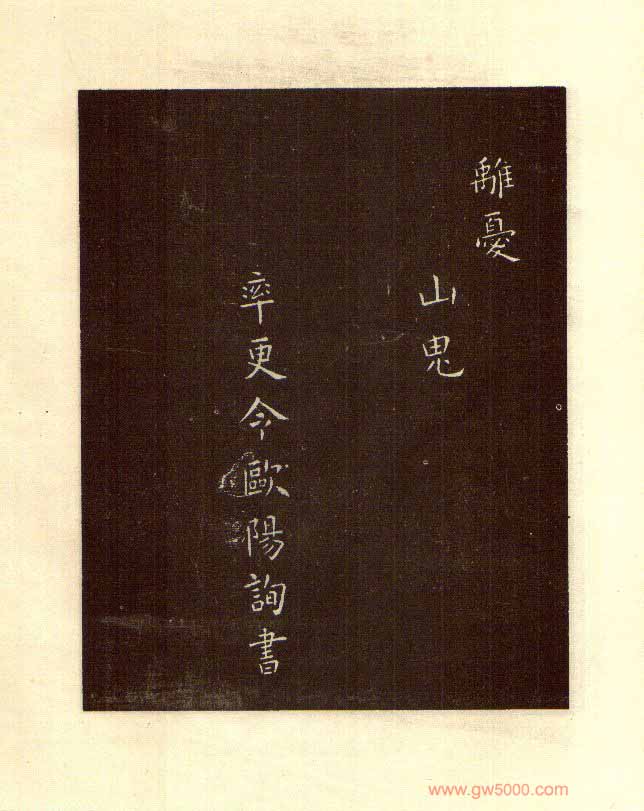 離憂
山鬼
率更令歐陽詢書
www.gw5000.com